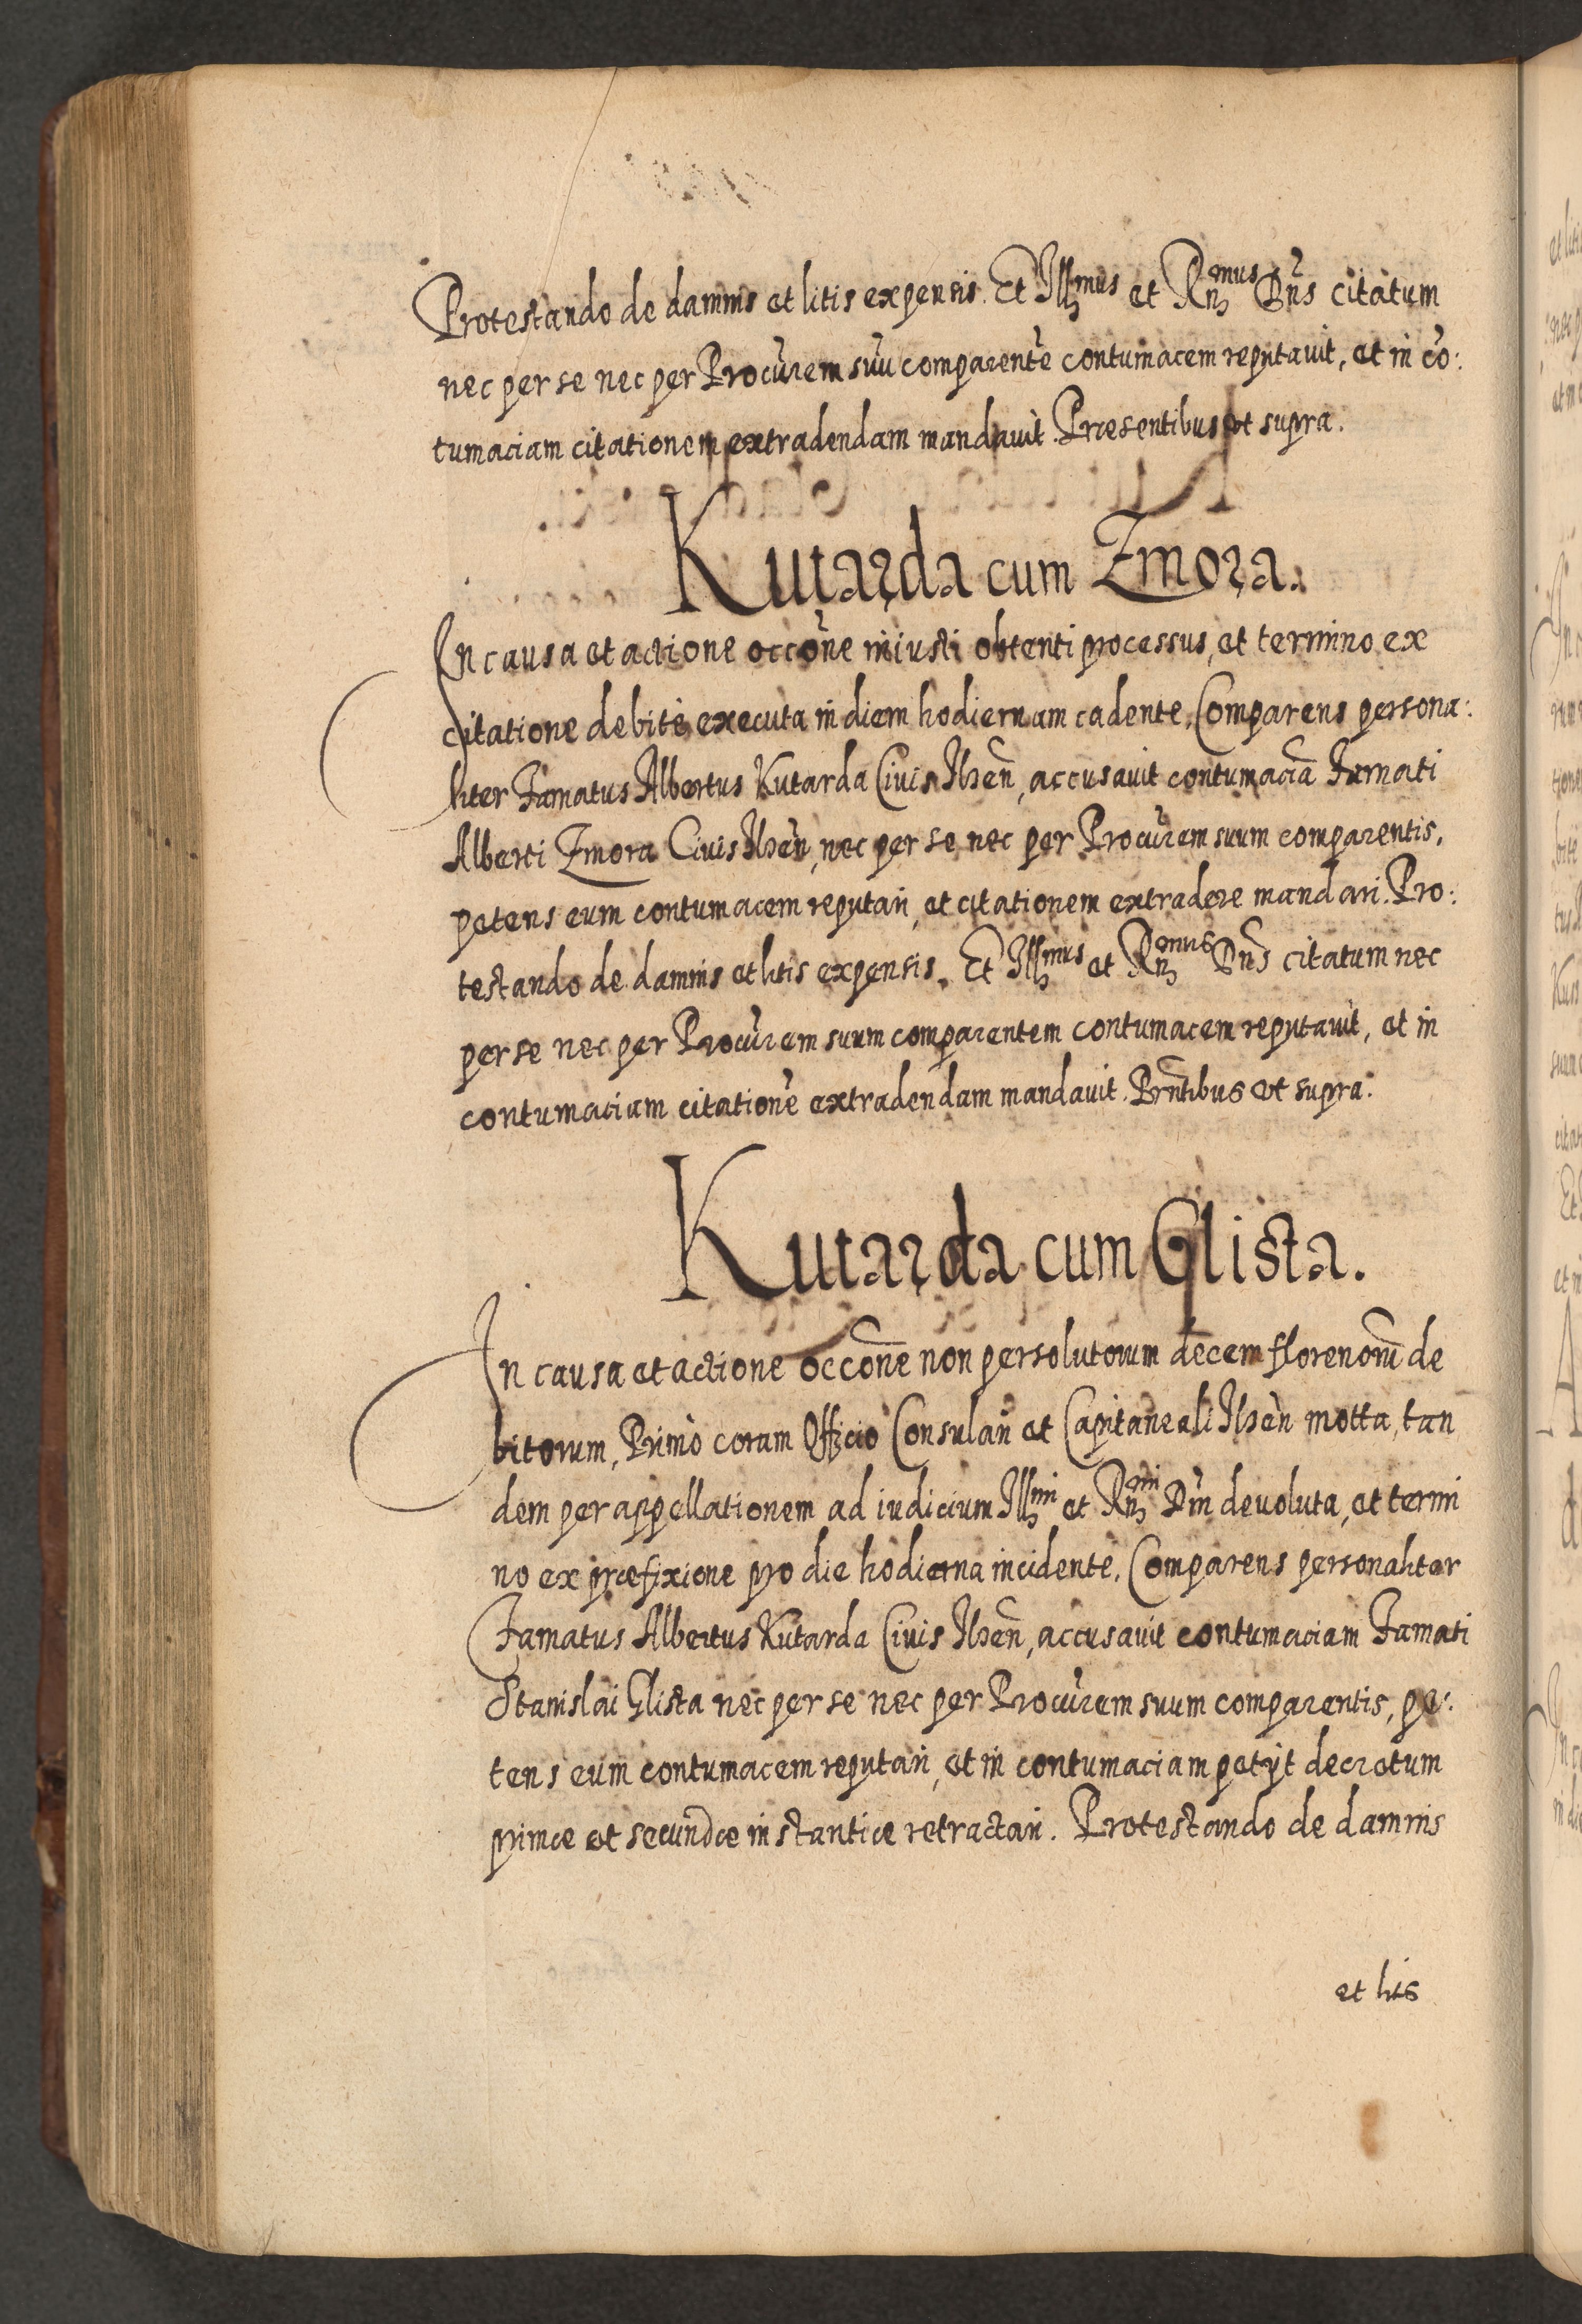 Protestando de damnis et litis expensis. Et Illmus et Rnmus Dns citatum
nec per se nec per Procurem suū comparentē contumacem reputauit, et in cō:
tumaciam citationem extradendam mandauit. Præsentibus ut supra.
Kutarda cum Zmora.
In causa et actione occone iniusti obtenti processus, et termino ex
citatione debite executa in diem hodiernam cadente, Comparens persona:
liter Famatus Albertus Kutarda Ciuis Ilzen, accusauit contumaciā Famati
Alberti Zmora Ciuis Ilzen, nec per se nec per Procurem suum comparentis,
petens eum contumacem reputari, et citationem extradere mandari. Pro:
testando de damnis et litis expensis. Et Illmus et Rnmus Dns citatum nec
per se nec per Procurem suum comparentem contumacem reputauit, et in
contumaciam citationē extradendam mandauit. Prntibus ut supra.
Kutarda cum Glista.
In causa et actione occone non persolutorum decem florenorū de
bitorum, Primò coram Officio Consulari et Capitaneali Ilzen motta, tan
dem per appellationem ad iudicium Illmi et Rnmi Dni deuoluta, et termi
no ex præfixione pro die hodierna incidente, Comparens personaliter
Famatus Albertus Kutarda Ciuis Ilzen, accusauit contumaciam Famati
Stanislai Glista nec per se nec per Procurem suum comparentis, pe:
tens eum contumacem reputari, et in contumaciam petÿt decretum
primæ et secundæ instantiæ retractari. Protestando de damnis
et litis